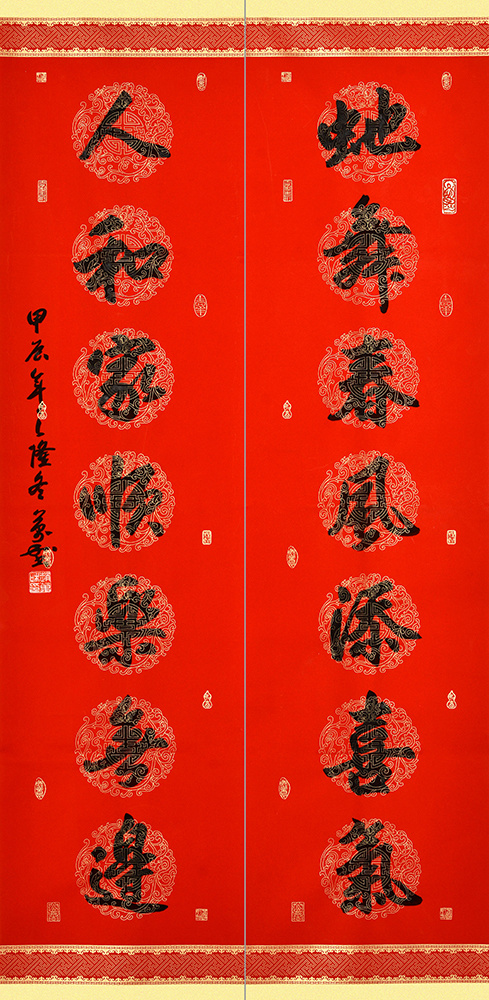 蛇舞春風添喜氣
人和家順樂無邊
甲辰年之隆冬